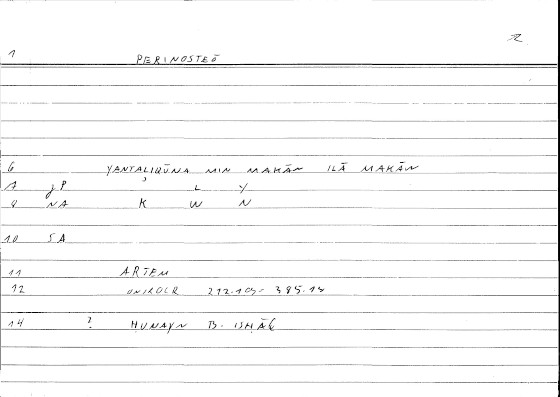 1 PERINOSTEŌ
6 YANTALIQŪNA MIN MAKĀN ILĀ MAKĀN
7 JP L Y
8 NA K W N
10 SA
11 ARTEM
12 ONIROCR 212.10 - 385.13
14 ? ḤUNAYN B. ISḤĀQ